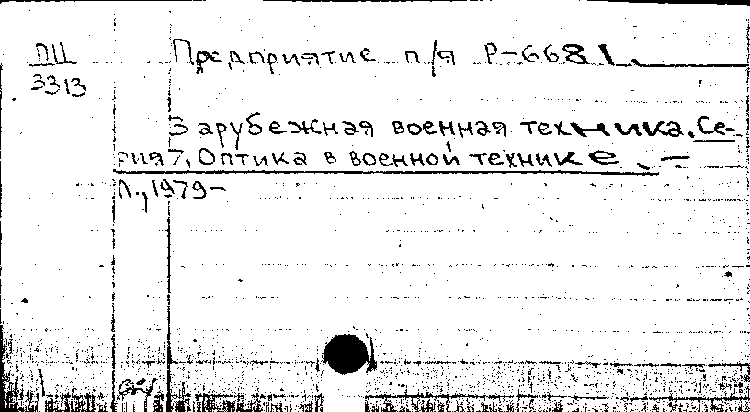 ПШ
3313
Предприятие п/я Р-6681.
Зарубежная военная техника. Се-
рия 7, Оптика в военной технике. —
Л., 1979-